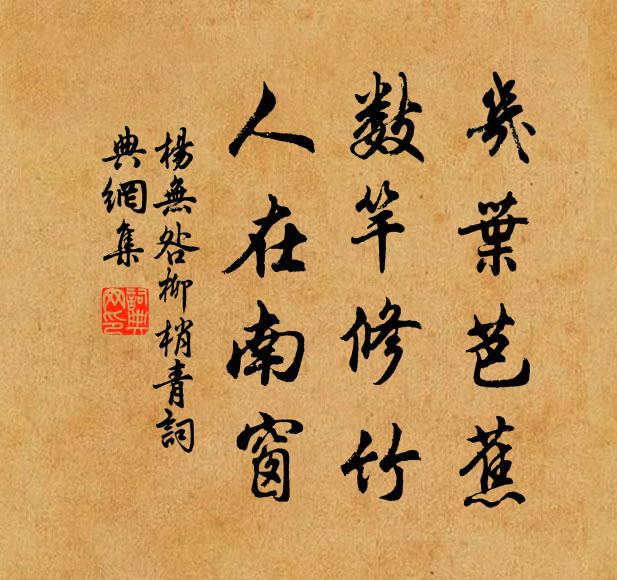 幾葉芭蕉
數竿修竹
人在南窗
楊無咎柳梢青詞
典網集
詞典
网印